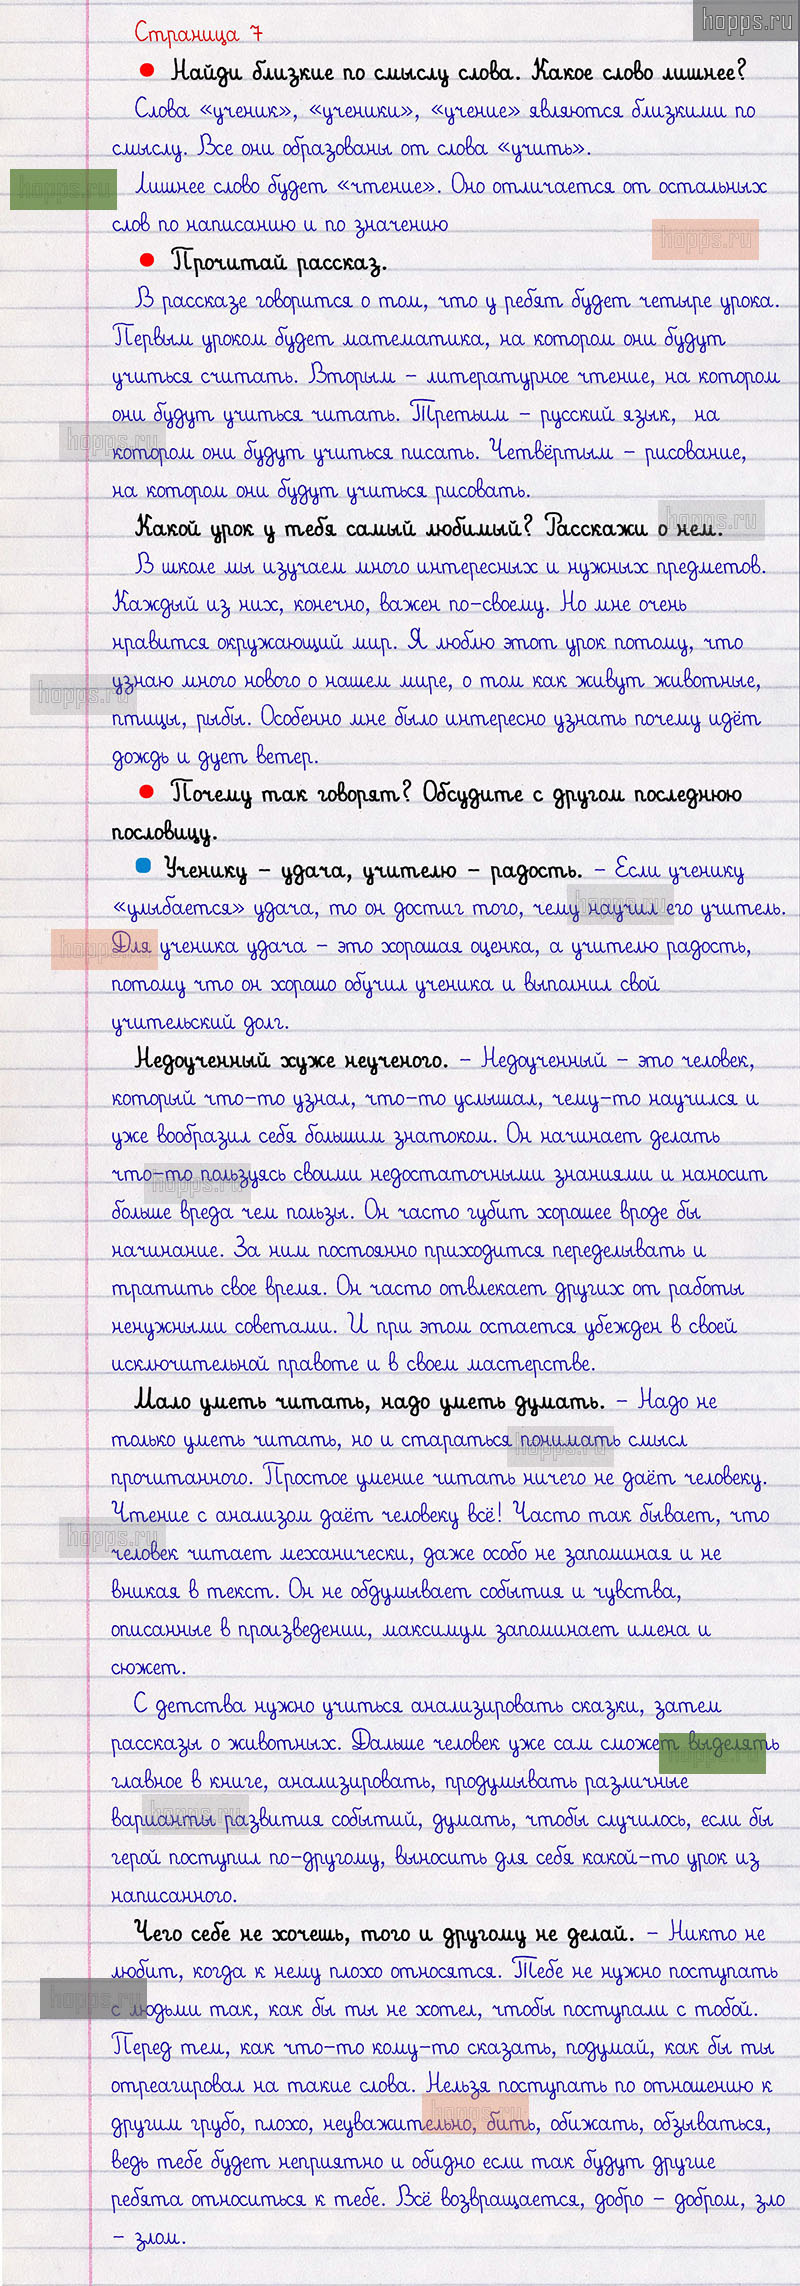 hopps.ru
Страница 7
Найди близкие по смыслу слова. Какое слово лишнее?
Слова «ученик», «ученики», «учение» являются близкими по
смыслу. Все они образованы от слова «учить».
hopps.ru
Лишнее слово будет «чтение». Оно отличается от остальных
слов по написанию и по значению
hopps.ru
Прочитай рассказ.
В рассказе говорится о том, что у ребят будет четыре урока.
Первым уроком будет математика, на котором они будут
учиться считать. Вторым – литературное чтение, на котором
они будут учиться читать. Третьим – русский язык, на
hopps.ru
котором они будут учиться писать. Четвёртым – рисование,
на котором они будут учиться рисовать.
hopps.ru
Какой урок у тебя самый любимый? Расскажи о нем.
В школе мы изучаем много интересных и нужных предметов.
Каждый из них, конечно, важен по-своему. Но мне очень
нравится окружающий мир. Я люблю этот урок потому, что
узнаю много нового о нашем мире, о том как живут животные,
hopps.ru
птицы, рыбы. Особенно мне было интересно узнать почему идёт
дождь и дует ветер.
Почему так говорят? Обсудите с другом последнюю
пословицу.
Ученику – удача, учителю – радость. – Если ученику
«улыбается» удача, то он достиг того, чему научил его учитель.
hopps.ru
Для ученика удача – это хорошая оценка, а учителю радость,
hopps.ru
потому что он хорошо обучил ученика и выполнил свой
учительский долг.
Недоученный хуже неученого. – Недоученный – это человек,
который что-то узнал, что-то услышал, чему-то научился и
уже вообразил себя большим знатоком. Он начинает делать
что-то пользуясь своими недостаточными знаниями и наносит
hopps.ru
больше вреда чем пользы. Он часто губит хорошее вроде бы
начинание. За ним постоянно приходится переделывать и
тратить свое время. Он часто отвлекает других от работы
ненужными советами. И при этом остается убежден в своей
исключительной правоте и в своем мастерстве.
Мало уметь читать, надо уметь думать. – Надо не
только уметь читать, но и стараться понимать смысл
hopps.ru
прочитанного. Простое умение читать ничего не даёт человеку.
Чтение с анализом даёт человеку всё! Часто так бывает, что
hopps.ru
человек читает механически, даже особо не запоминая и не
вникая в текст. Он не обдумывает события и чувства,
описанные в произведении, максимум запоминает имена и
сюжет.
С детства нужно учиться анализировать сказки, затем
рассказы о животных. Дальше человек уже сам сможет выделять
hopps.ru
главное в книге, анализировать, продумывать различные
hopps.ru
варианты развития событий, думать, чтобы случилось, если бы
герой поступил по-другому, выносить для себя какой-то урок из
написанного.
Чего себе не хочешь, того и другому не делай. – Никто не
любит, когда к нему плохо относятся. Тебе не нужно поступать
hopps.ru
с людьми так, как бы ты не хотел, чтобы поступали с тобой.
Перед тем, как что-то кому-то сказать, подумай, как бы ты
отреагировал на такие слова. Нельзя поступать по отношению к
hopps.ru
другим грубо, плохо, неуважительно, бить, обижать, обзываться,
ведь тебе будет неприятно и обидно если так будут другие
ребята относиться к тебе. Всё возвращается, добро – добром, зло
– злом.